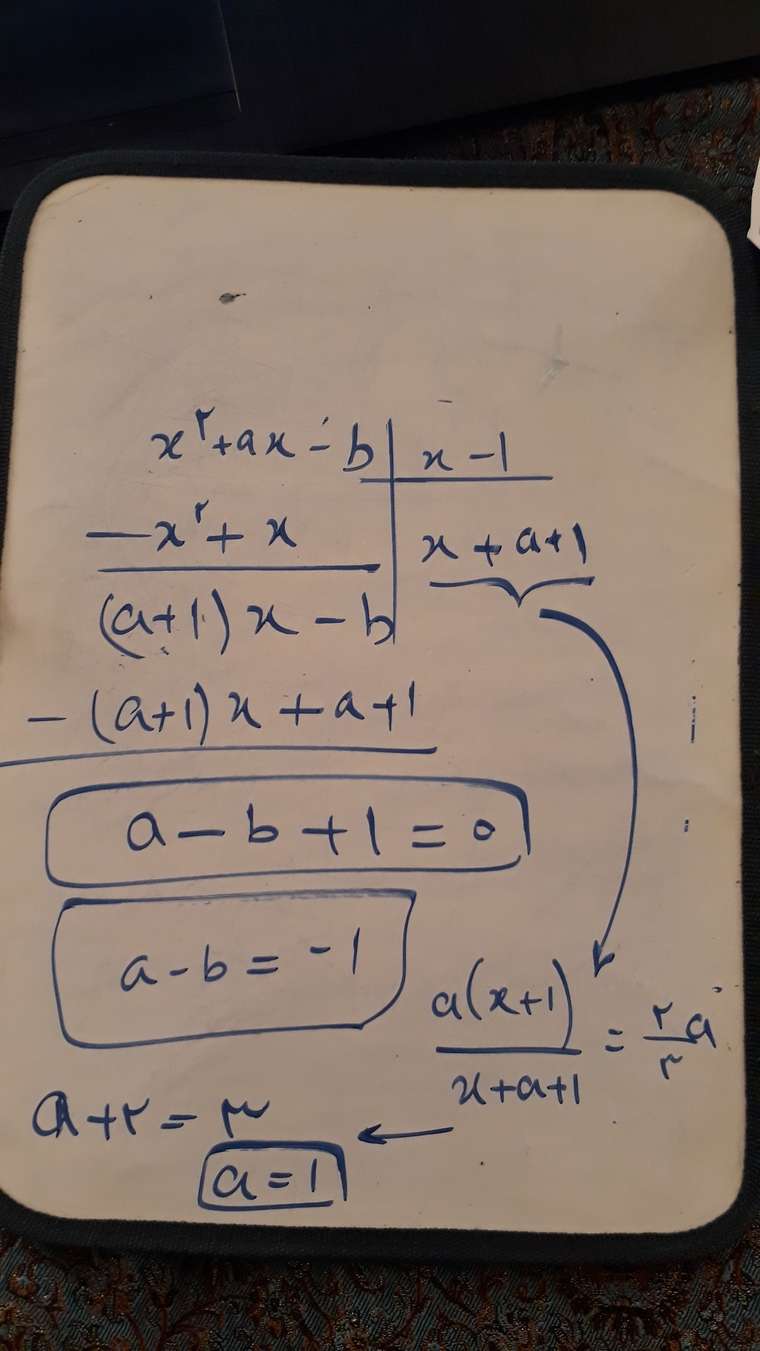 x^۲+ax-b | x-1
-x^۲+x | x+a+1
(a+1)x-b
-(a+1)x+a+1
a-b+1=۰
a-b=-1
a(x+1)/(x+a+1) = ۲/۳ a
a+۲=۳
a=1